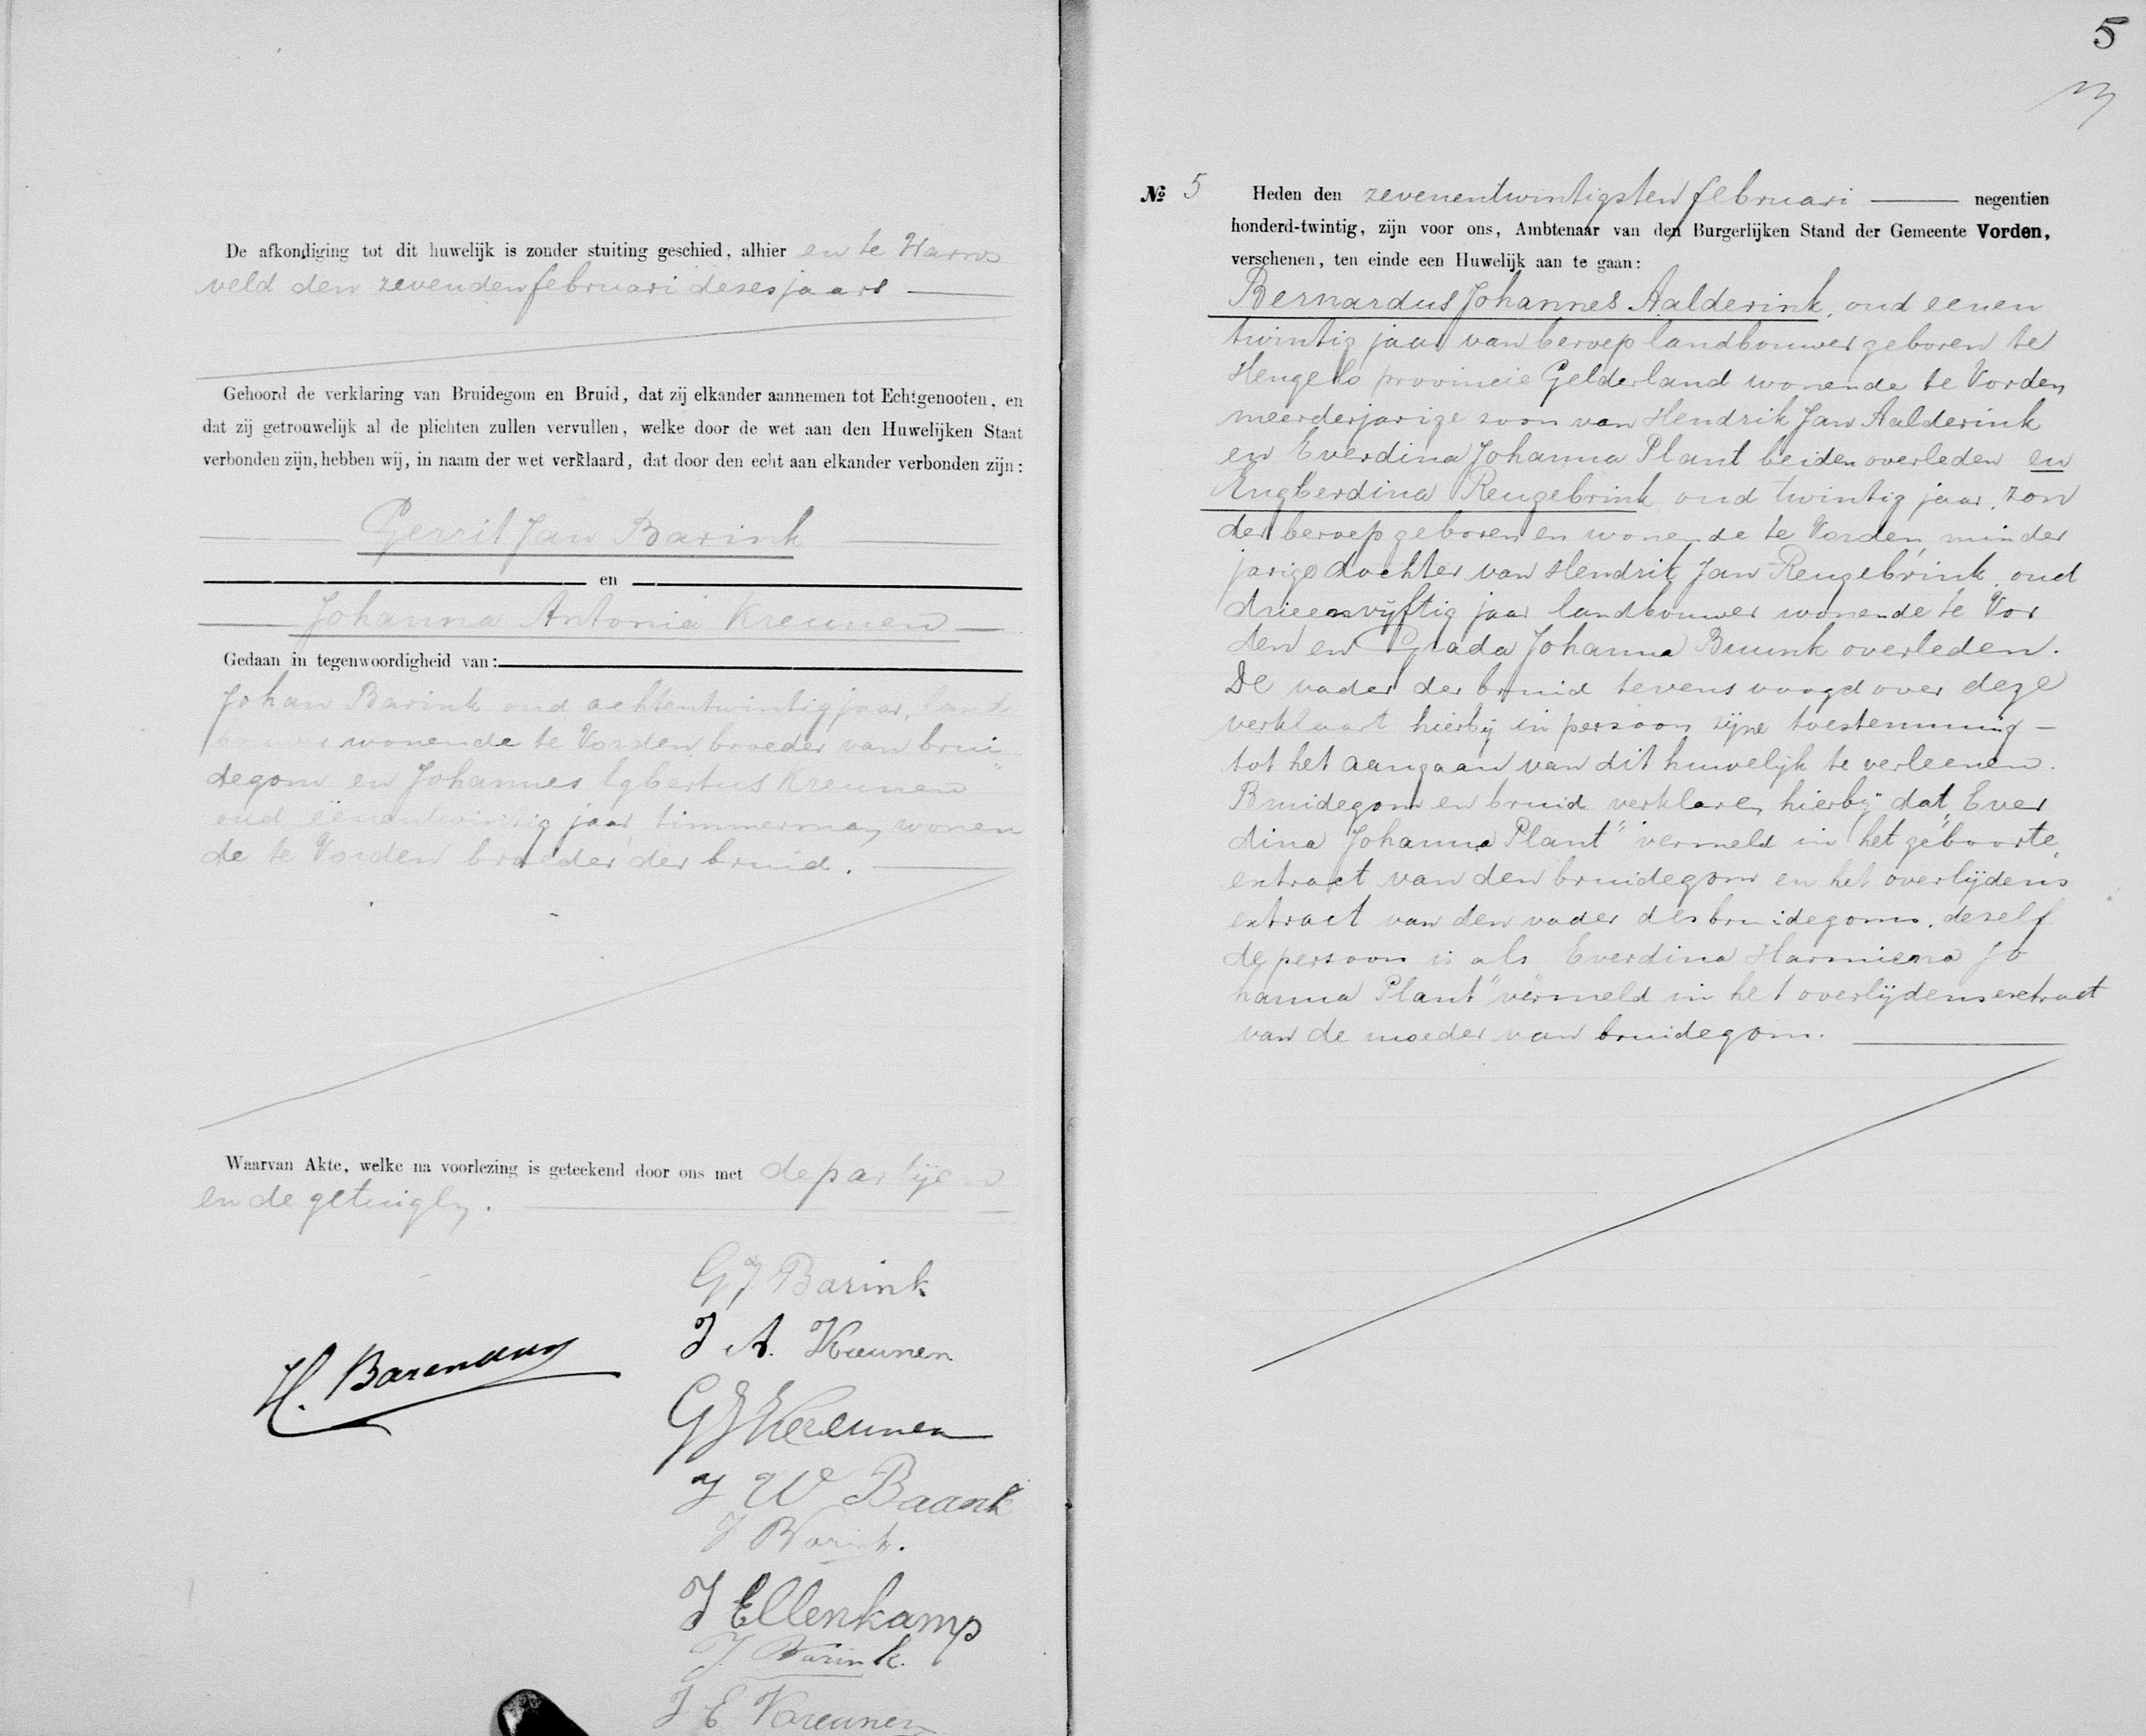 De afkondiging tot dit huwelijk is zonder stuiting geschied, alhier en te Warns
veld den zevenden februari dezes jaars
Gehoord de verklaring van Bruidegom en Bruid, dat zij elkander aannemen tot Echtgenooten, en
dat zij getrouwelijk al de plichten zullen vervullen, welke door de wet aan den Huwelijken Staat
verbonden zijn, hebben wij, in naam der wet verklaard, dat door den echt aan elkander verbonden zijn:
Gerrit Jan Barink
en
Johanna Antonia Kreunen
Gedaan in tegenwoordigheid van:
Johan Barink oud achtentwintig jaar, land
bouwer wonende te Vorden broeder van brui
degom en Johannes Egbertus Kreunen
oud eenentwintig jaar, timmerman, wonen
de te Vorden broeder der bruid.
Waarvan Akte, welke na voorlezing is geteekend door ons met de partijen
en de getuigen.
GJ Barink
J A. Kreunen
H. Barendsen
GJ Kreunen
J W Baank
J Barink.
J Ellenkamp
J. Barink.
J E Kreunen
5
Nº 5 Heden den zevenentwintigsten februari negentien
honderd-twintig, zijn voor ons, Ambtenaar van den Burgerlijken Stand der Gemeente Vorden,
verschenen, ten einde een Huwelijk aan te gaan:
Bernardus Johannes Aalderink, oud eenen
twintig jaar van beroep landbouwer geboren te
Hengelo provincie Gelderland wonende te Vorden,
meerderjarige zoon van Hendrik Jan Aalderink
en Everdina Johanna Plant beiden overleden en
Engberdina Reugebrink oud twintig jaar, zon
der beroep geboren en wonende te Vorden, minder
jarige dochter van Hendrik Jan Reugebrink, oud
drieenvijftig jaar landbouwer wonende te Vor
den en Grada Johanna Buunk overleden.
De vader der bruid tevens voogd over deze
verklaart hierbij in persoon zijne toestemming -
tot het aangaan van dit huwelijk te verleenen.
Bruidegom en bruid verklaren hierbij dat „Ever
dina Johanna Plant" vermeld in het geboorte
extract van den bruidegom en het overlijdens
extract van den vader des bruidegoms, dezelf
de persoon is als „Everdina Harmiena Jo
hanna Plant" vermeld in het overlijdensextract
van de moeder van bruidegom.